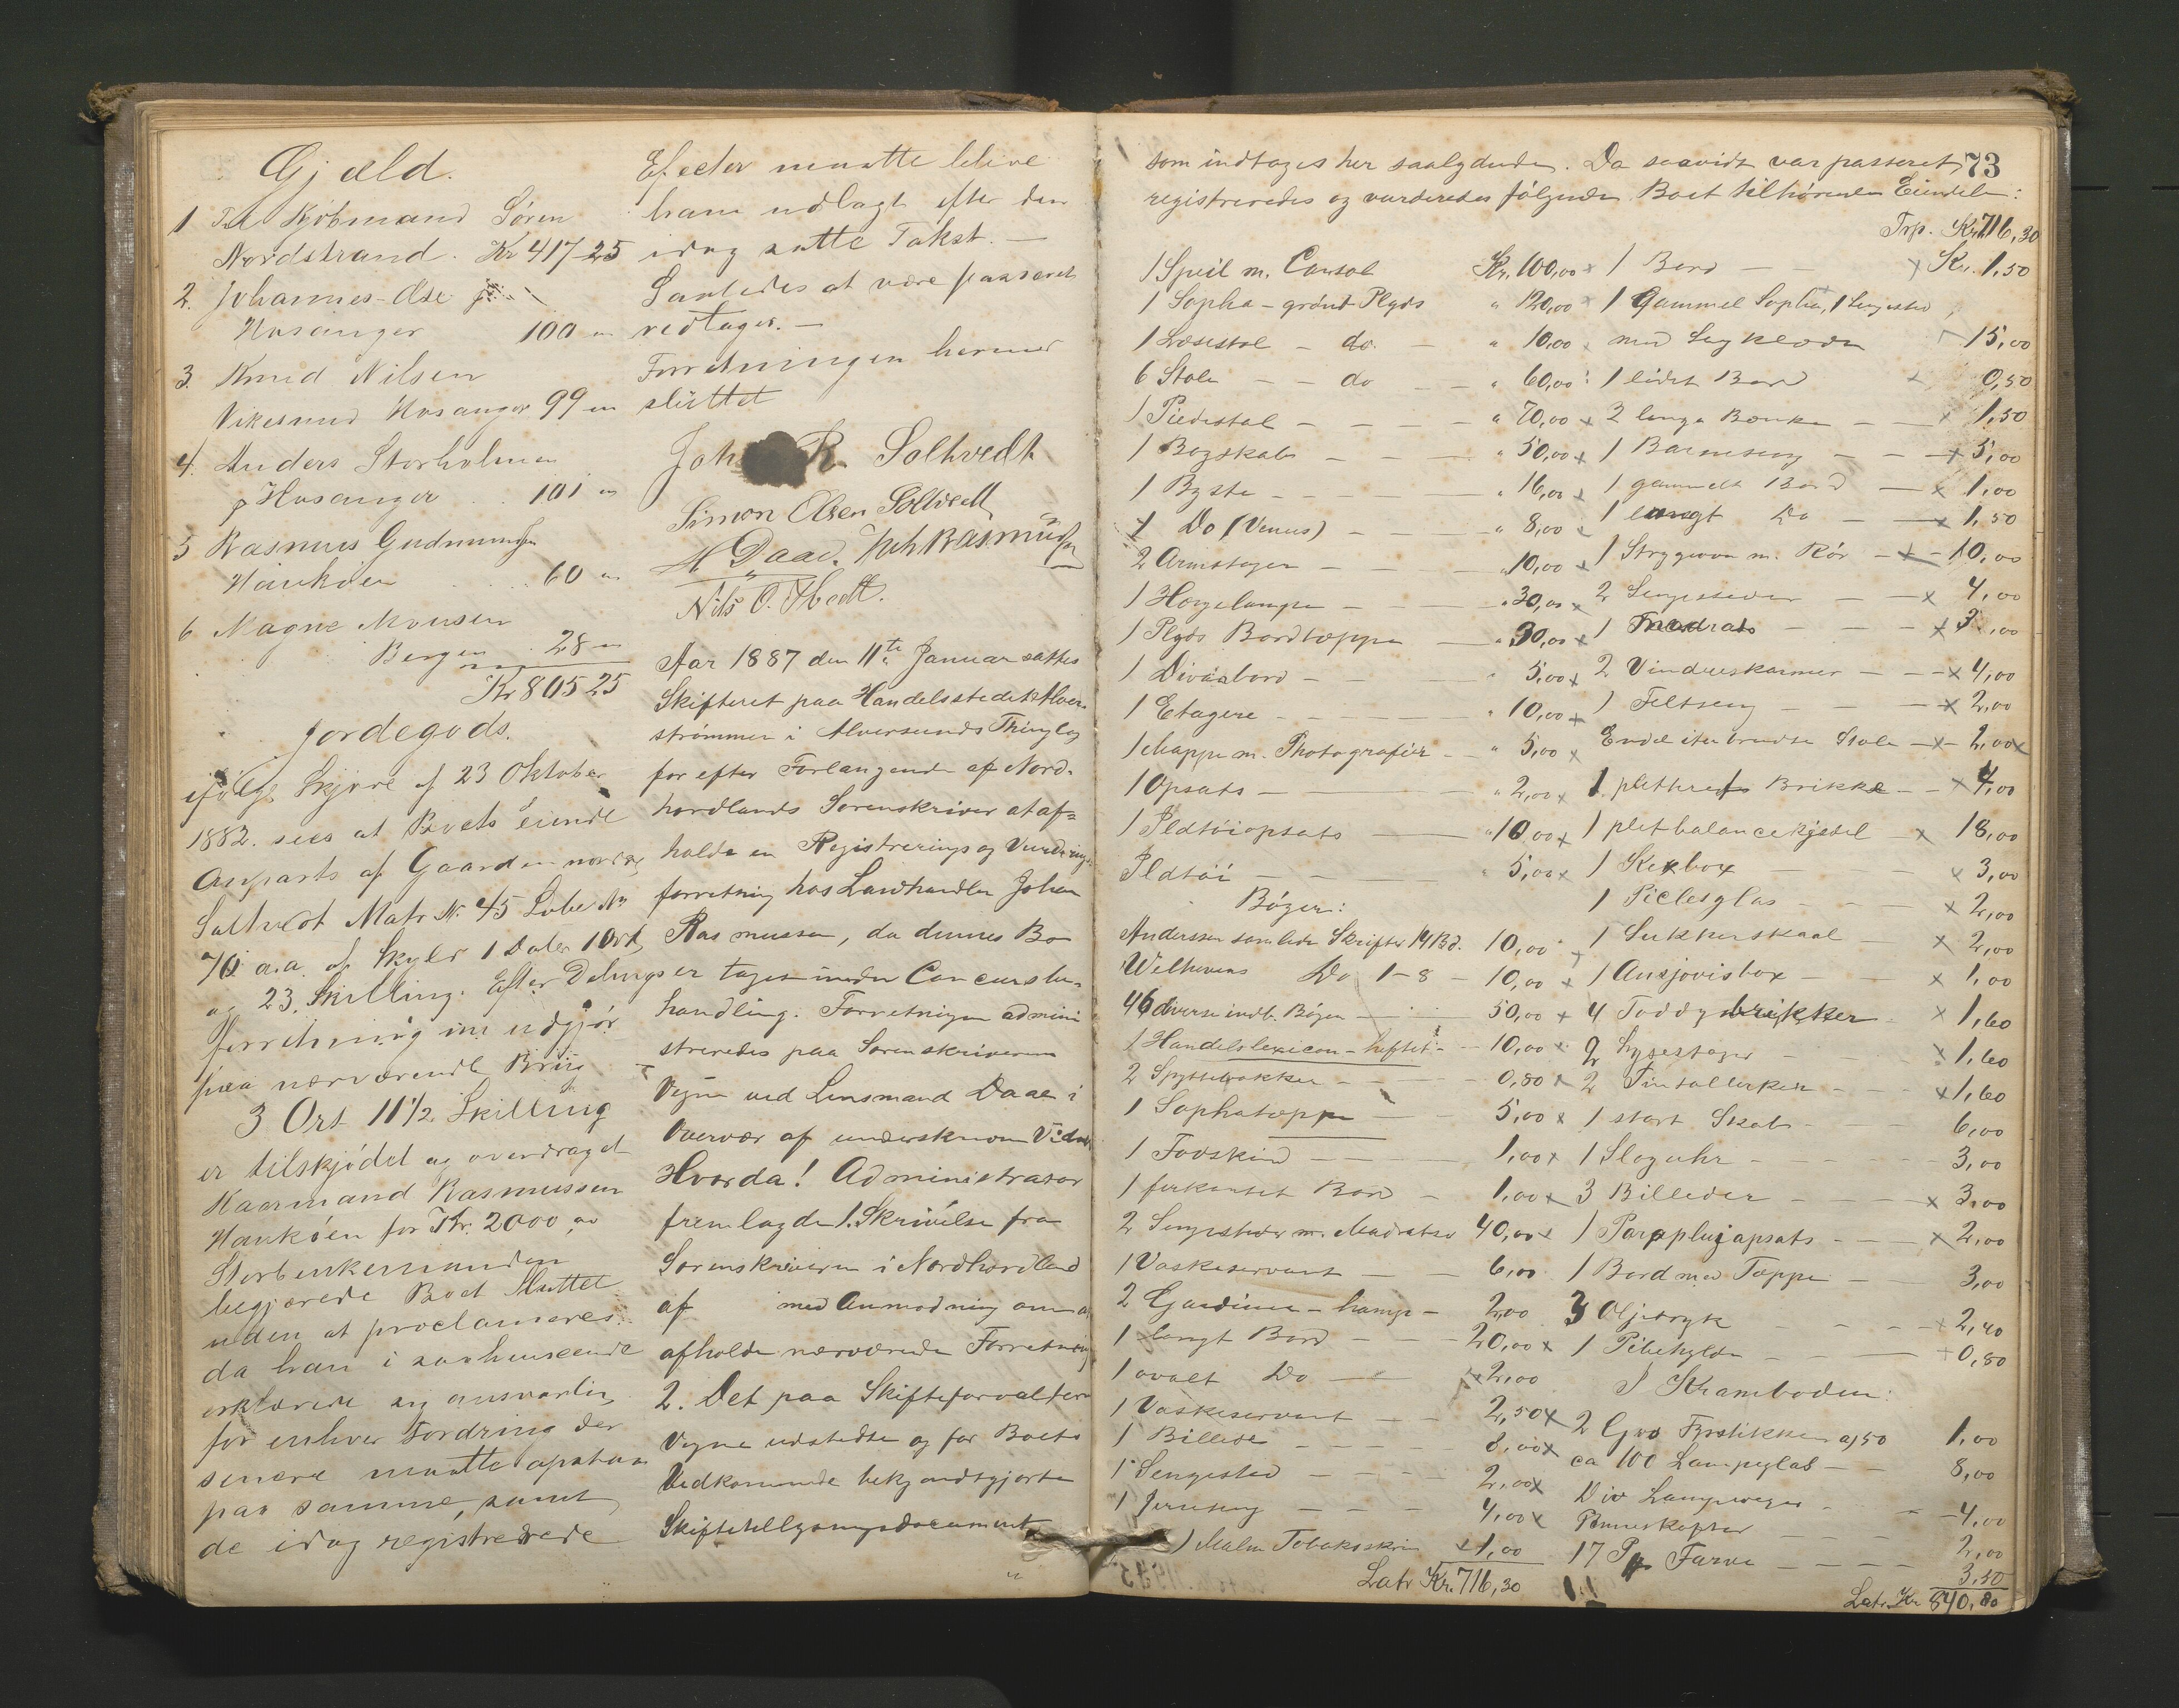 Gjæld.
1 Til Kjøbmand Søren
Nordstrand. Kr 417-25
2. Johannes Olse
Hosanger 100 "
3. Knud Nilsen
Vikesund Hosanger 99 "
4. Anders Storholmen
p Hosanger 101 "
5 Rasmus Gudmundsen
Haukøen 60 "
6 Magne Monsen
Bergen 28 "
Kr 805 25
Jordegods.
ifølge Skjøde af 23 Oktober
1882. sees at Boets eiende
Anparts af Gaarden nordre
Soltvedt Matr. Nr. 45 Løbe Nr
70 a.a. af Skyld 1 Daler 1 Ort
og 23 Skilling. Efter Delings
forretning nu udgjør
paa nærværende Brug
3 Ort 11 1/2 Skilling
er tilskjødet og overdraget
Kaarmand Rasmussen
Haukøen for Kr. 2000,00
Sterbenkemanden
begjærede Boet sluttet
uden at proclameres
da han i saahenseende
erklærede sig ansvarlig
for enhver Fordring der
senere maatte opstaa
paa samme, samt
de idag registrerede
Efecter maatte blive
ham udlagt efter den
idag satte Takst. —
Saaledes at være passeret
vedtages. —
Forretningen hermed
sluttet
Joh R. Soltvedt
Simon Olsen Soltvedt
H Daae. Joh Rasmussen
Nils O.
Aar 1887 den 11te Januar sattes
Skifteret paa Handelsstedet Alver-
strømmen i Alversunds Thinglag
for efter Forlangende af Nord-
hordlands Sorenskriver at af-
holde en Registrerings og Vurderings-
forretning hos Landhandler Johan
Rasmussen, da dennes Bo
er taget under Concursbe-
handling. Forretningen admini
streredes paa Sorenskriverens
Vegne ved Lensmand Daae i
Overvær af underskrevne Vidner
Hvorda! Administrator
fremlagde 1. Skrivelse fra
Sorenskriveren i Nordhordland
af med Anmodning om at
afholde nærværende Forretning
2. Det paa Skifteforvalterens
Vegne udstedte og for Boets
Vedkommende bekjendtgjorte
Skiftetillysningsdocument
73
som indtages her saalydende. Da saavidt var passeret,
registreredes og vurderedes følgende Boet tilhørende Eiendele:
1 Speil m. Consol Kr. 100,00 x
1 Sopha - grønt Plyds " 120,00 x
1 Læsestol - do - " 10,00 x
6 Stole - - do - - " 60,00
1 Piedestal - - - - " 70,00 x
1 Bogskab - - - " 50,00 x
1 Byste - - " 16,00 x
1 Do (Venus) - - " 8,00 x
2 Armstager - - - " 10,00 x
1 Hængelampe - - " 30,00 x
1 Plyds Bordtæppe - " 30,00 x
1 Divanbord - - - " 5,00 x
1 Etagere - - - - " 10,00 x
1 Mappe m. Photografier - " 5,00 x
1 Opsats - - " 2,00 x
1 Ildtøiopsats - " 10,00 x
Ildtøi - - - " 5,00 x
Bøger:
Andersen samlede Skrifter 14 Bd. 10,00 x
Welhavens Do 1-8 - 10,00 x
46 diverse indb. Bøger - 50,00 x
1 Handelslexicon - heftet - 10,00 x
2 Spyttebakker - - - 0,80 x
1 Sophatæppe - - 5,00 x
1 Fodskind - - - 1,00 x
1 firkantet Bord - 1,00 x
2 Sengesteder m. Madratser 40,00 x
1 Vaskeservant - - 6,00
2 Gardiner - hamp - 2,00
1 langt Bord - - - 20,00 x
1 ovalt Do - - x 2,00
1 Vaskeservant - - 2,50 x
1 Billede - - - - 8,00 x
1 Sengested - - - - 2,00 x
1 Jernseng - - - 4,00 x
1 Malm Tobaksskrin x 1,00
Latr Kr. 716,30
Trp. Kr. 716,30
1 Bord - - x Kr. 1,50
1 Gammel Sopha, 1 Sengested
med Sengklæder 15,00
1 lidet Bord x 0,50
2 lange Bænke - - x 1,50
1 Barneseng - - x 5,00
1 gammelt Bord - x 1,00
1 langt Do - - x 1,50
1 Strygeovn m. Rør - x - 10,00
2 Sengesteder - - x 4,00
1 Madrats - - - x 3,00
2 Vindueskarmer - - x 4,00
1 Feltseng - - - x 2,00
Endel iturbrudte Stole - x - 2,00 x
1 pletteret Brikke - - x 4,00
1 pletbalancekjedel - x 18,00
1 Kexbox - - x 3,00
1 Piclesglas - - - x 2,00
1 Sukkerskaal - - x 2,00
1 Ansjovisbox - - x 1,00
4 Toddybrikker - x 1,60
2 Lysestager - x 1,60
2 Tintallerken - - - x 1,60
1 stort Skab - - - 6,00
1 Slaguhr - - - - 3,00
3 Billeder - - - - x 3,00
1 Paraplyiapsats - - - x 2,00
1 Bord med Tæppe - - 3,00
3 Oljetryk - - - x 2,40
1 Pibehylde - - - x 0,80
I Kramboden:
2 Gros Fyrstikker a/50 1,00
ca 100 Lampeglas - - 8,00
Div Lampeveger - - - 4,00
- - - 2,00
17 Pk Farve - - - - 3,50
Latr. Kr 840,80